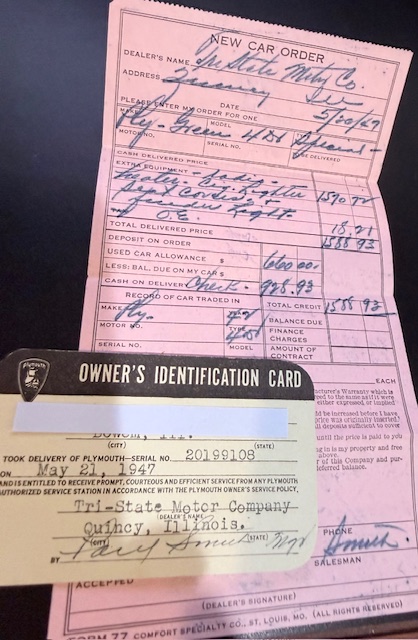 NEW CAR ORDER
DEALER'S NAME Tri State Motor Co.
ADDRESS Quincy Ill
DATE 5/20/47
PLEASE ENTER MY ORDER FOR ONE
MAKE MODEL TYPE
Ply- Green 4 Dr Special -
MOTOR NO. SERIAL NO. DELIVERED
CASH DELIVERED PRICE
EXTRA EQUIPMENT - Radio -
Heater - Cig. Lighter 1570 72
O.E. 18.21
TOTAL DELIVERED PRICE 1588 93
DEPOSIT ON ORDER
USED CAR ALLOWANCE $ 660 00
LESS: BAL. DUE ON MY CAR $
CASH ON DELIVERY Check - 928.93
RECORD OF CAR TRADED IN TOTAL CREDIT 1588 93
MAKE Ply. BALANCE DUE
MOTOR NO. TYPE FINANCE CHARGES
SERIAL NO. MODEL AMOUNT OF CONTRACT
Plymouth
OWNER'S IDENTIFICATION CARD
Bowen, Ill.
(CITY) (STATE)
TOOK DELIVERY OF PLYMOUTH-SERIAL NO. 20199108
ON May 21, 1947
AND IS ENTITLED TO RECEIVE PROMPT, COURTEOUS AND EFFICIENT SERVICE FROM ANY PLYMOUTH
AUTHORIZED SERVICE STATION IN ACCORDANCE WITH THE PLYMOUTH OWNER'S SERVICE POLICY,
Tri-State Motor Company
(DEALER'S NAME)
Quincy, Illinois.
(CITY) (STATE)
BY Paul Smith Mgr
EACH
facturer's Warranty which is
to the same as if it were
either expressed, or implied
be increased before I have
price was originally
all deposits sufficient to cover
until the price is paid to you
ing is in my property and free
above.
of this Company and pur-
ferred balance.
PHONE
Smith
SALESMAN
ACCEPTED
(DEALER'S SIGNATURE)
FORM 77 COMFORT SPECIALTY CO., ST. LOUIS, MO. (ALL RIGHTS RESERVED)